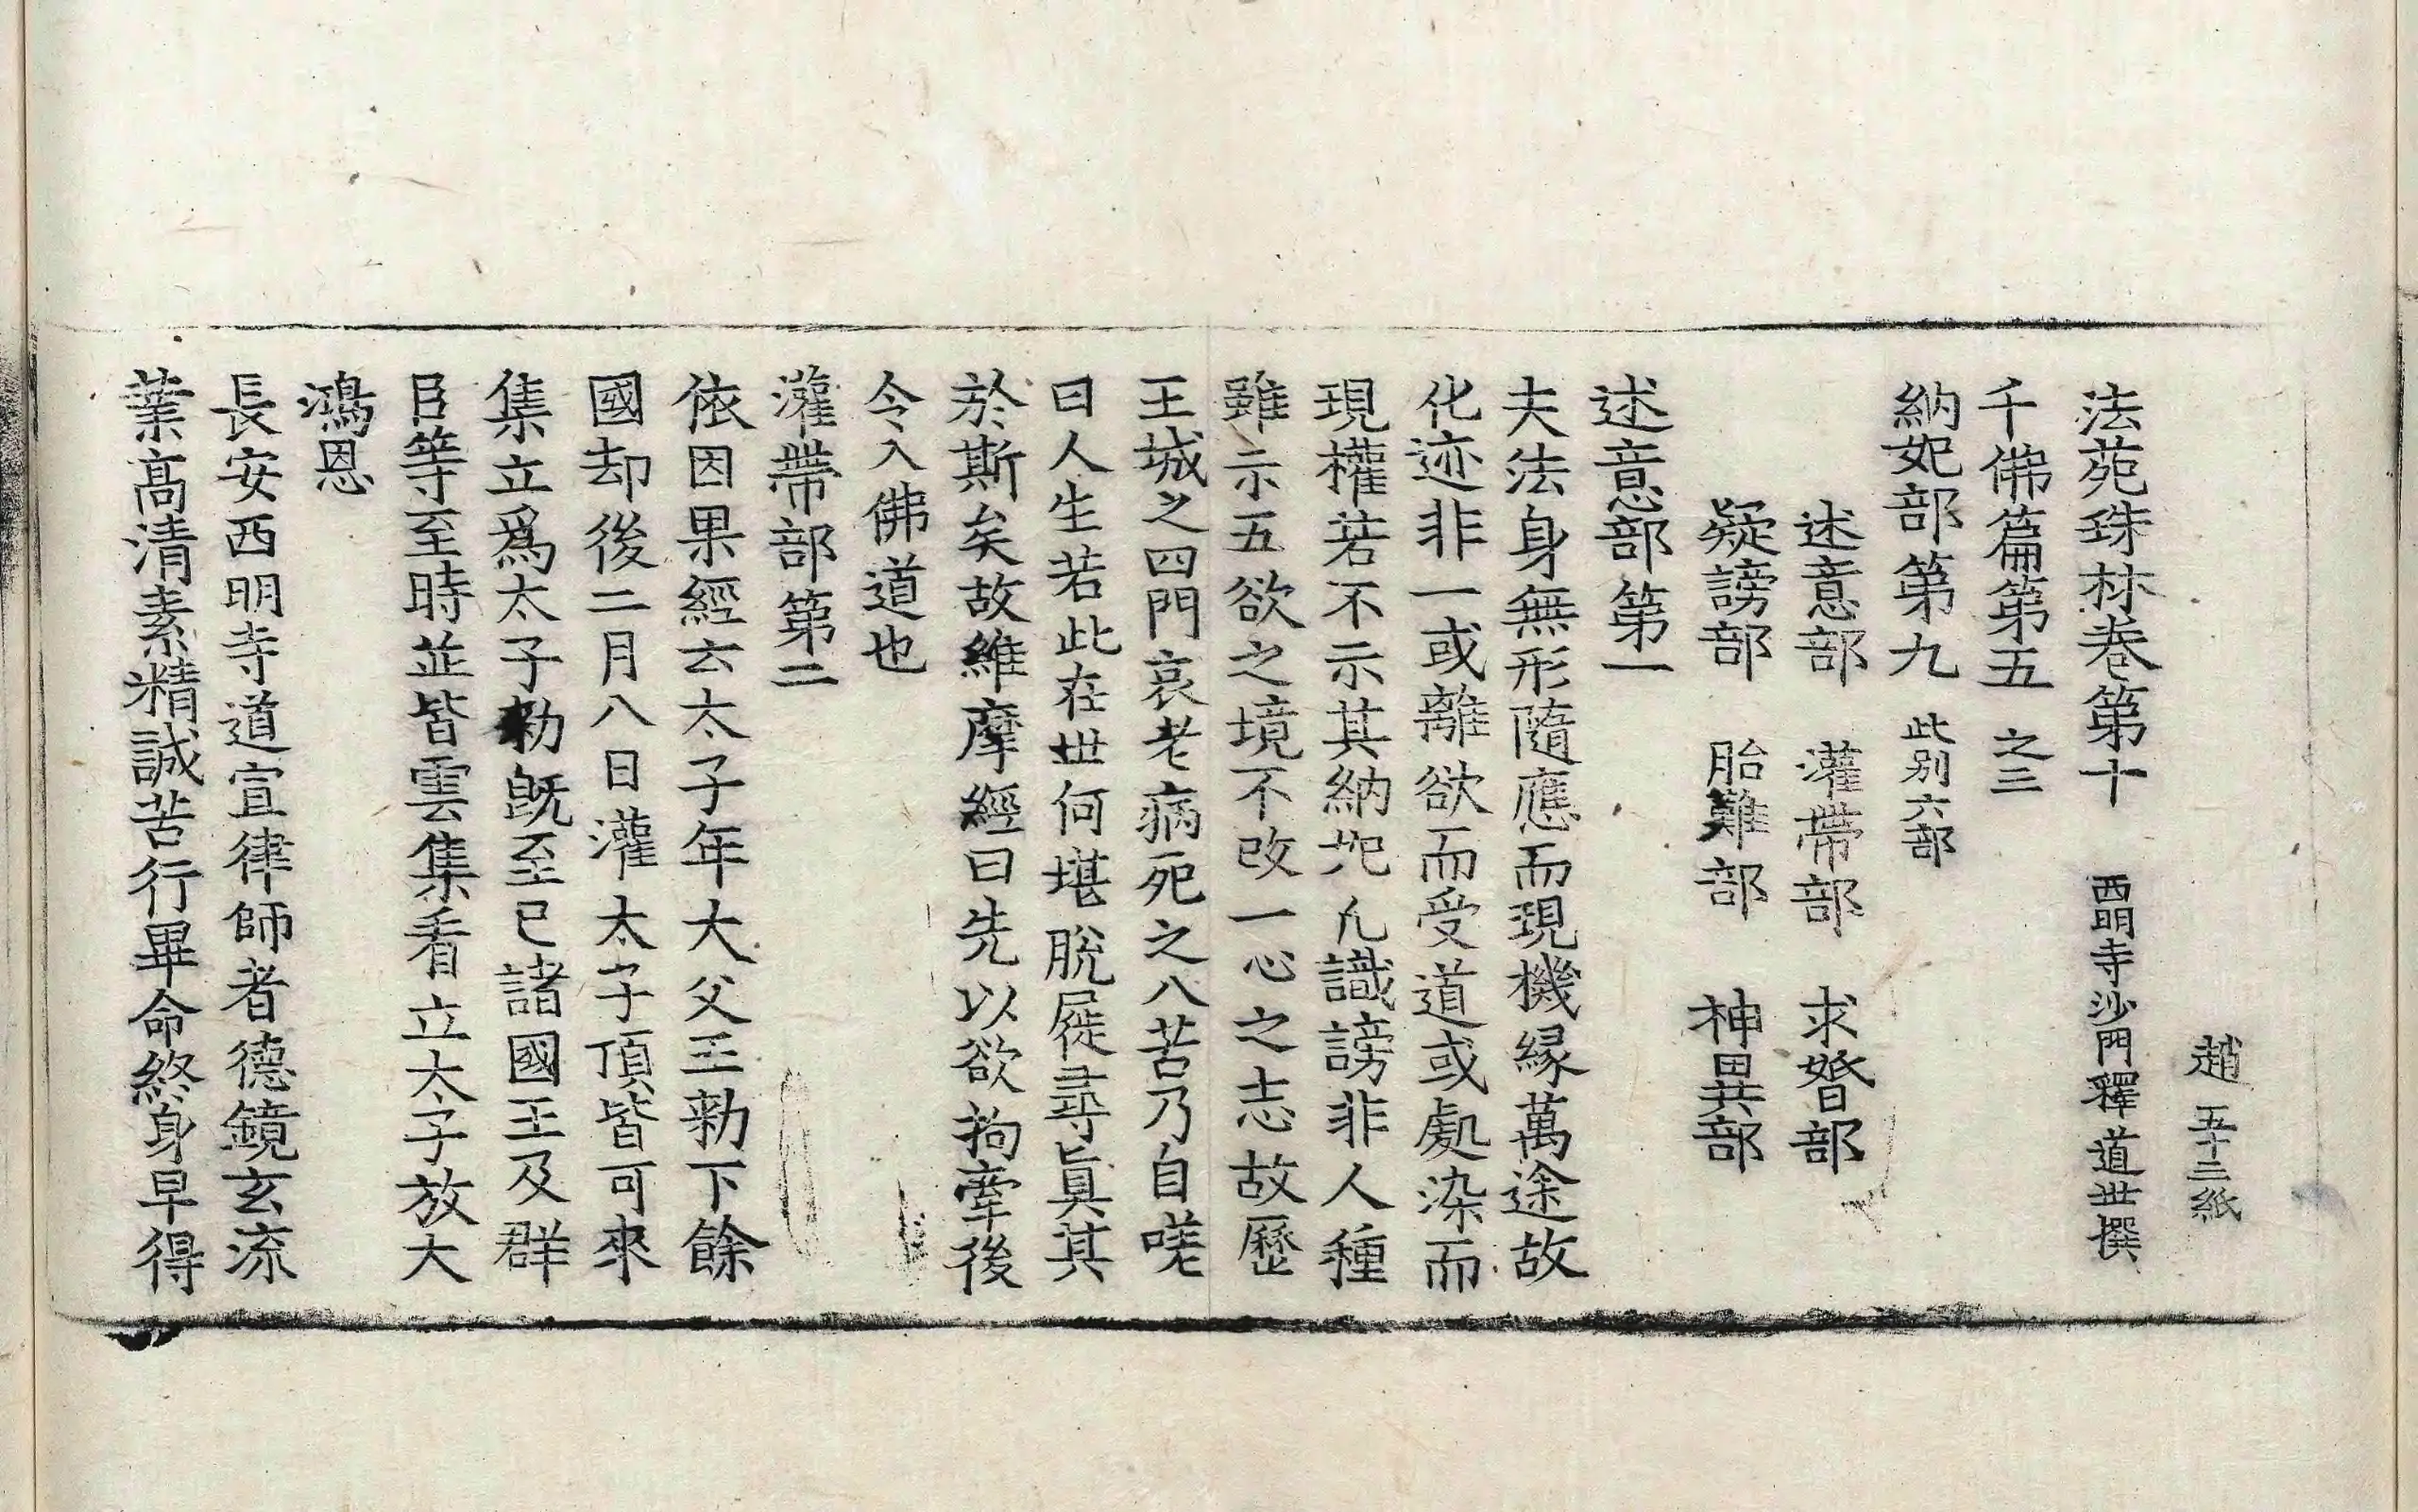 趙 五十二紙
法苑珠林卷第十 西明寺沙門釋道世撰
千佛篇第五 之三
納妃部第九 此别六部
述意部 灌帶部 求婚部
疑謗部 胎難部 神異部
述意部第一
夫法身無形隨應而現機緣萬途故
化迹非一或離欲而受道或處染而
現權若不示其納妃凡識謗非人種
雖示五欲之境不改一心之志故歷
王城之四門哀老病死之八苦乃自嗟
曰人生若此在世何堪脫屣尋真其
於斯矣故維摩經曰先以欲拘牽後
令入佛道也
灌帶部第二
依因果經云太子年大父王勑下餘
國却後二月八日灌太子頂皆可來
集立爲太子勑旣至已諸國王及群
臣等至時並皆雲集看立太子放大
鴻恩
長安西明寺道宣律師者德鏡玄流
業高清素精誠苦行畢命終身早得